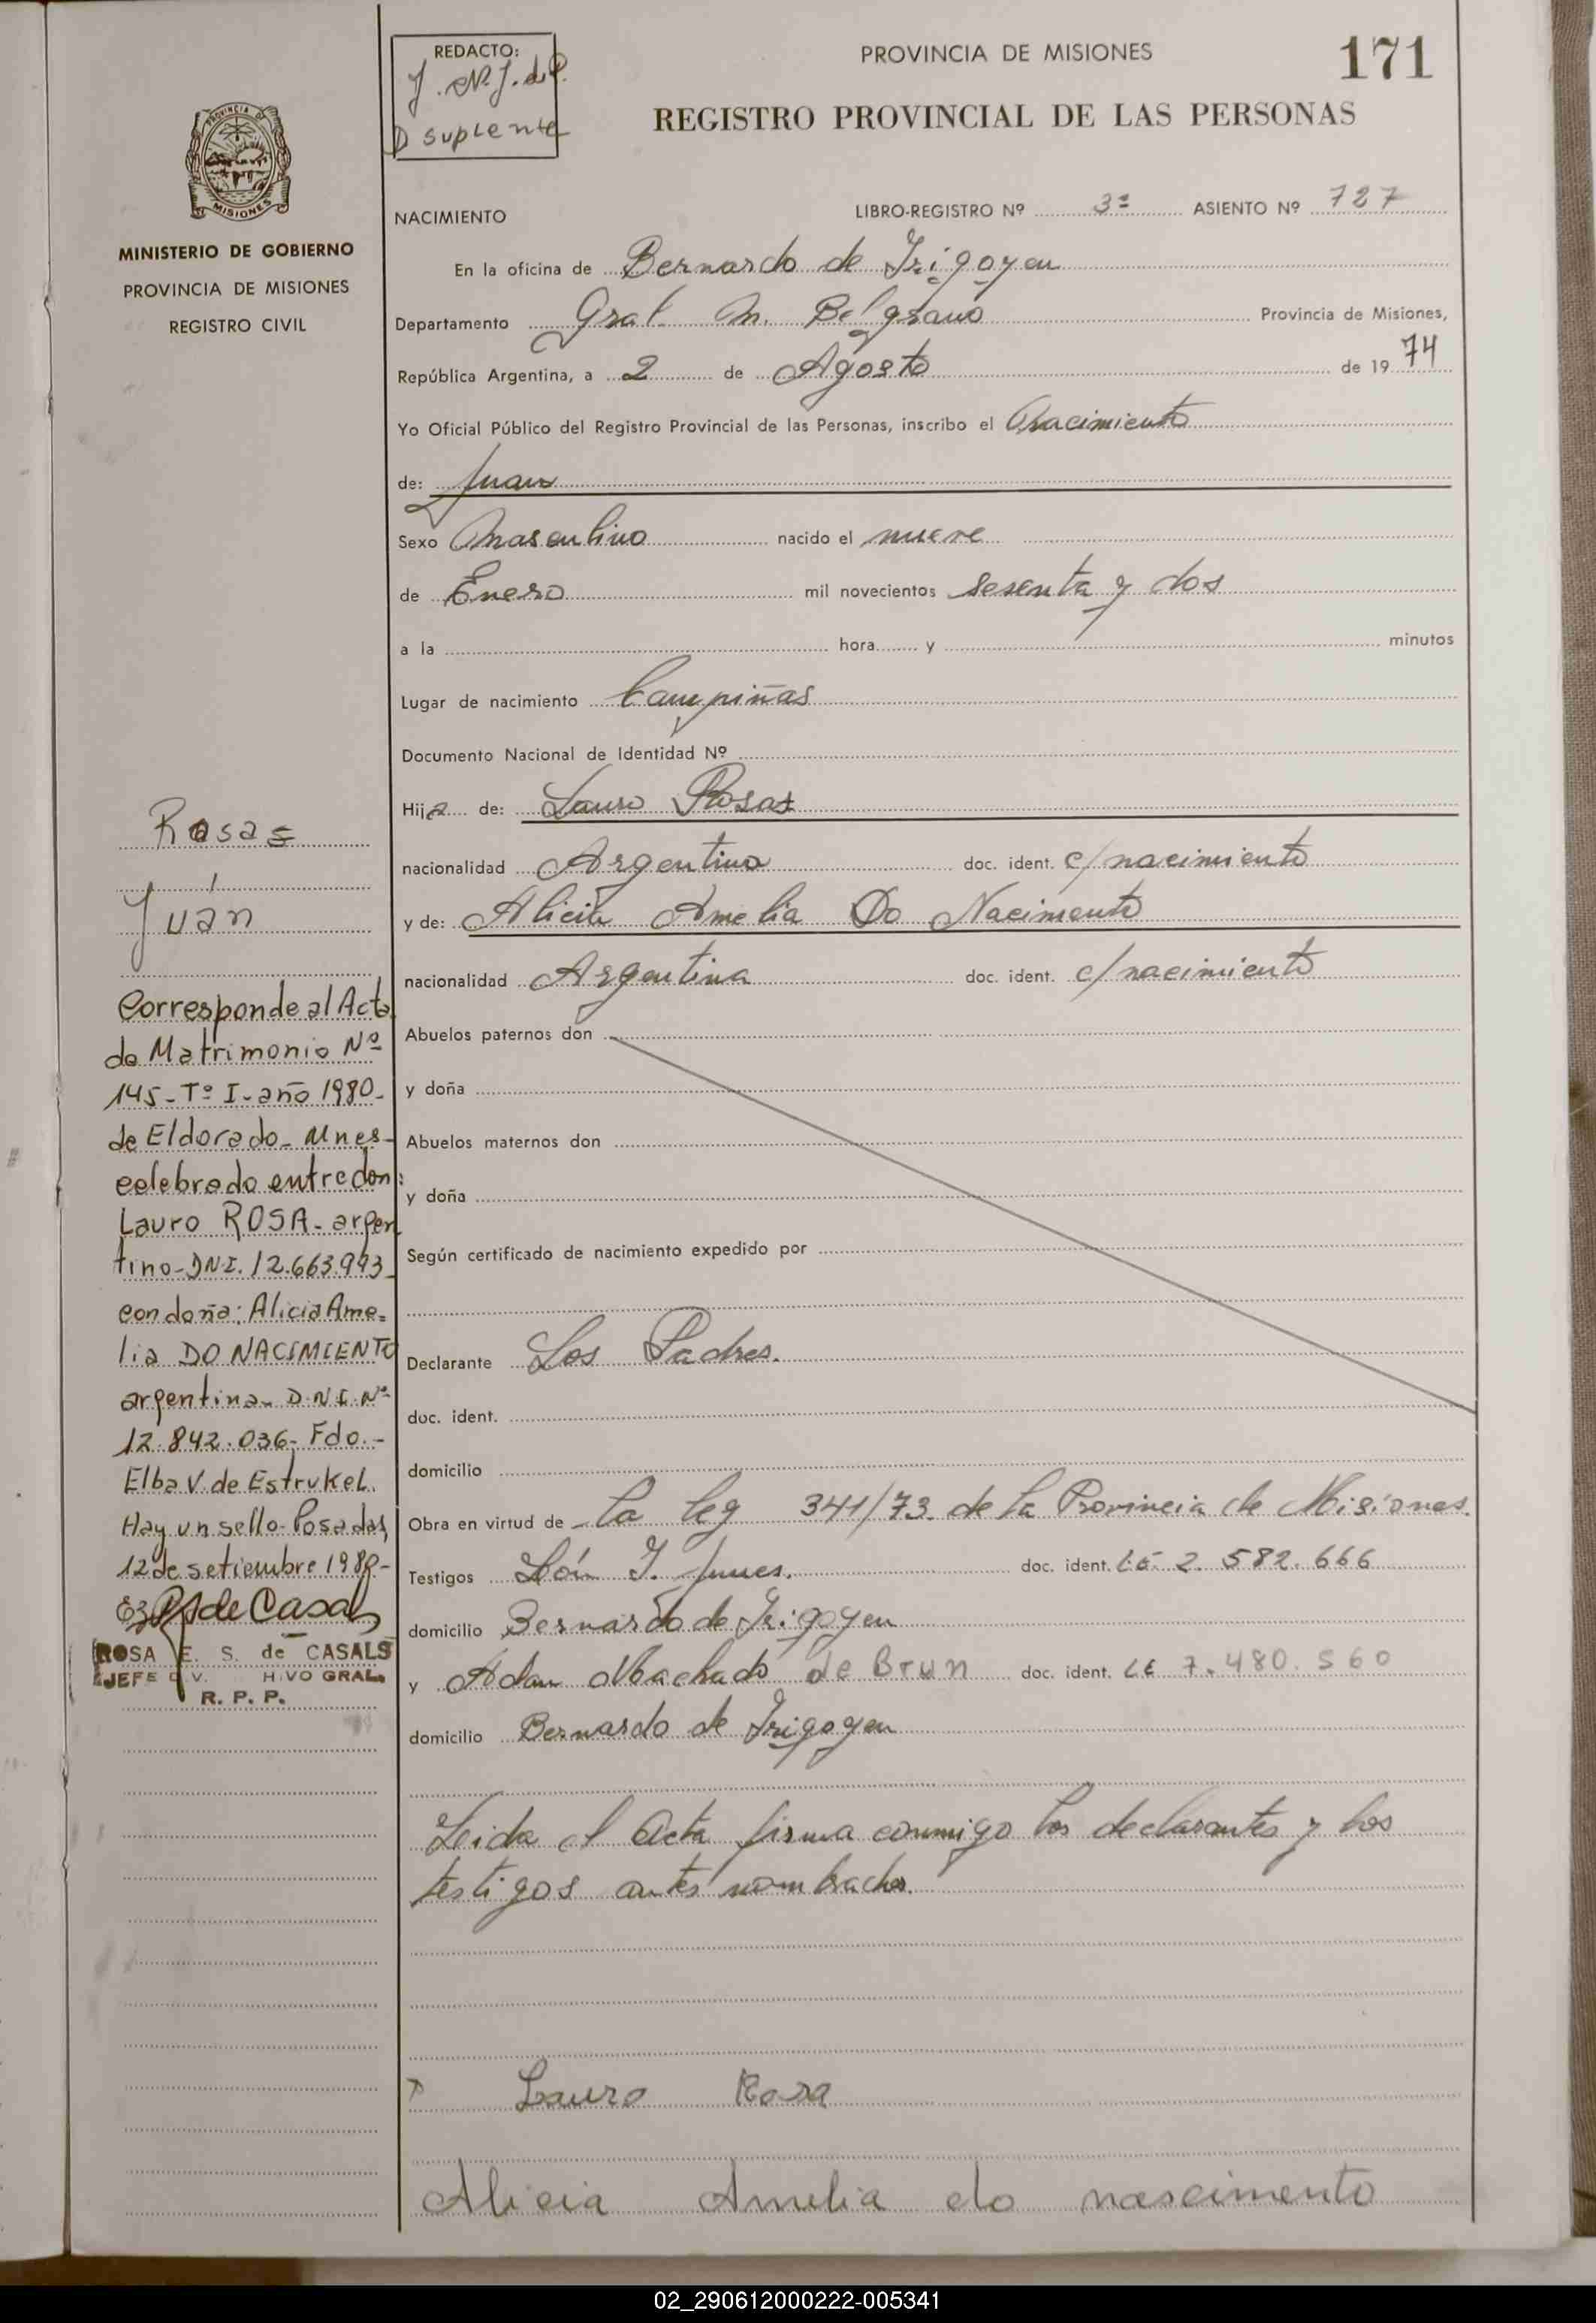 REDACTO:
J. N. J. del P.
D suplente
PROVINCIA DE MISIONES
171
REGISTRO PROVINCIAL DE LAS PERSONAS
MISIONES
MINISTERIO DE GOBIERNO
PROVINCIA DE MISIONES
REGISTRO CIVIL
NACIMIENTO
LIBRO-REGISTRO Nº 3º ASIENTO Nº 727
En la oficina de Bernardo de Irigoyen
Departamento Gral. M. Belgrano Provincia de Misiones,
República Argentina, a 2 de Agosto de 1974
Yo Oficial Público del Registro Provincial de las Personas, inscribo el Nacimiento
de: Juan
Sexo Masculino nacido el nueve
de Enero mil novecientos sesenta y dos
a la hora y minutos
Lugar de nacimiento Campiñas
Documento Nacional de Identidad Nº
Hijo de: Lauro Rosas
nacionalidad Argentino doc. ident. c/nacimiento
y de: Alicia Amelia Do Nacimento
nacionalidad Argentina doc. ident. c/nacimiento
Abuelos paternos don
y doña
Abuelos maternos don
y doña
Según certificado de nacimiento expedido por
Declarante Los Padres.
doc. ident.
domicilio
Obra en virtud de La ley 341/73 de la Provincia de Misiones.
Testigos J. Junes. doc. ident. L.E. 2.582.666
domicilio Bernardo de Irigoyen
y Adan Machado de Brun doc. ident. LE 7.480.560
domicilio Bernardo de Irigoyen
Leida el Acta firma conmigo los declarantes y los
testigos antes nombrados.
Lauro Rosa
Alicia Amelia do nascimento
Rosas
Juán
Corresponde al Acta
de Matrimonio Nº
145-Tº I-año 1980-
de Eldorado-Mnes-
celebrado entre don:
Lauro ROSA-argen
tino-DNI. 12.663.993
con doña: Alicia Ame=
lia DO NACIMIENTO
argentina-D.N.I.Nº
12.842.036-Fdo.-
Elba V. de Estrukel.
Hay un sello-Posadas,
12 de setiembre 1980-
de Casals
ROSA E. S. de CASALS
JEFE DIV. HIVO GRAL.
R. P. P.
02_290612000222-005341